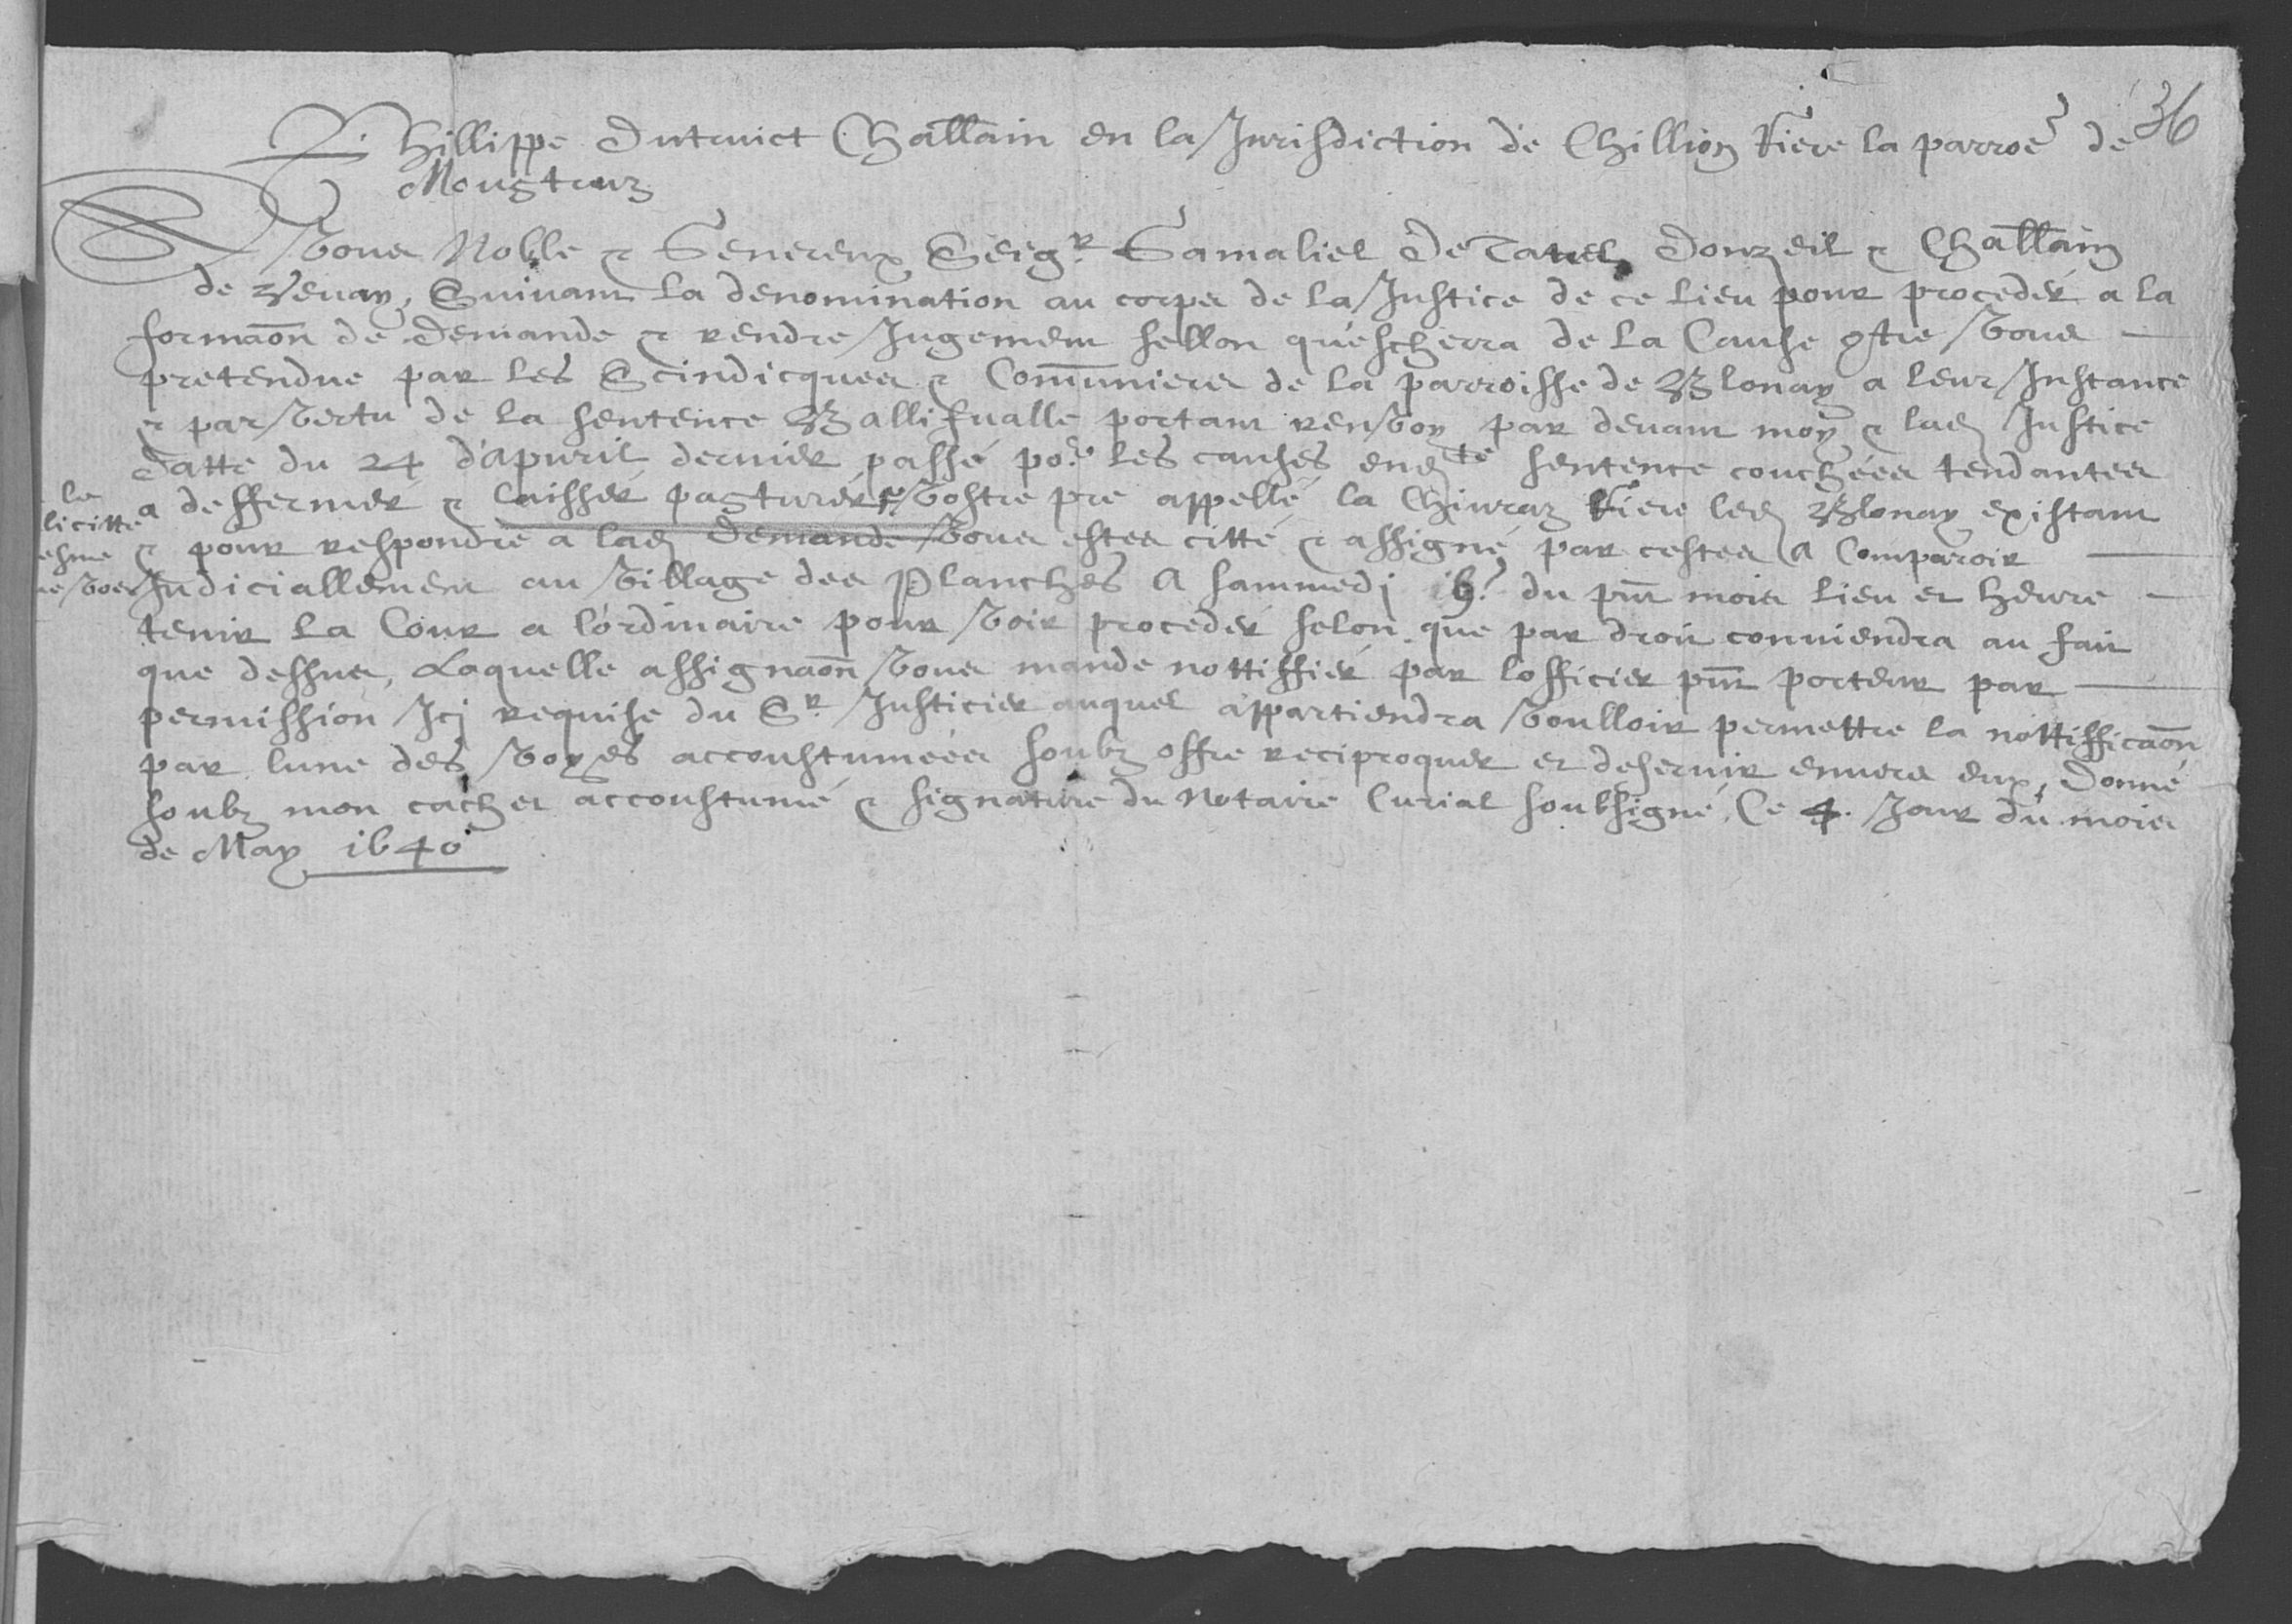 36
Phillippe Dutruict Challain en la Jurisdiction de Chillion riere la parroë de
Moustruz
Vous Noble & Genereux Seigr. Gamaliel De Tavel Donzeil & Challain
de Vevay, Suivant la denomination au corps de la Justice de ce lieu pour proceder a la
formaon de demande & rendre Jugement sellon quescherra de la Cause gtre Vous
pretendue par les Scindicques & Comuniers de la parroisse de Blonay a leur Instance
& par Vertu de la sentence Ballifvalle portant renvoy par devant moy & lad Justice
datté du 24 d'apuril dernier passé por les causes endte sentence couchées tendantes
a deffermer & laisser pasturer Vostre pre appellé la Chivraz riere led Blonay existant
& pour respondre a lad Demande Vous estes citté & assigné par cestes A Comparoir
Judiciallement au Village des Planches A sammedj du pnt mois lieu et heure
tenir la Cour a lordinaire pour Voir proceder selon que par droit conviendra au fait
que dessus, Laquelle assignaon Vous mande nottiffier par lofficier pnt porteur par
permission Icj requise du Sr. Justicier auquel appartiendra Voulloir permettre la nottifficaon
par lune des Voyes accoustumées soubz offre reciproquer et deservir envers eux, Donné
soubz mon cachet accoustumé & signature du Notaire Curial soubsigné, Ce 4. Jour du mois
de May 1640
la
licitte
esme